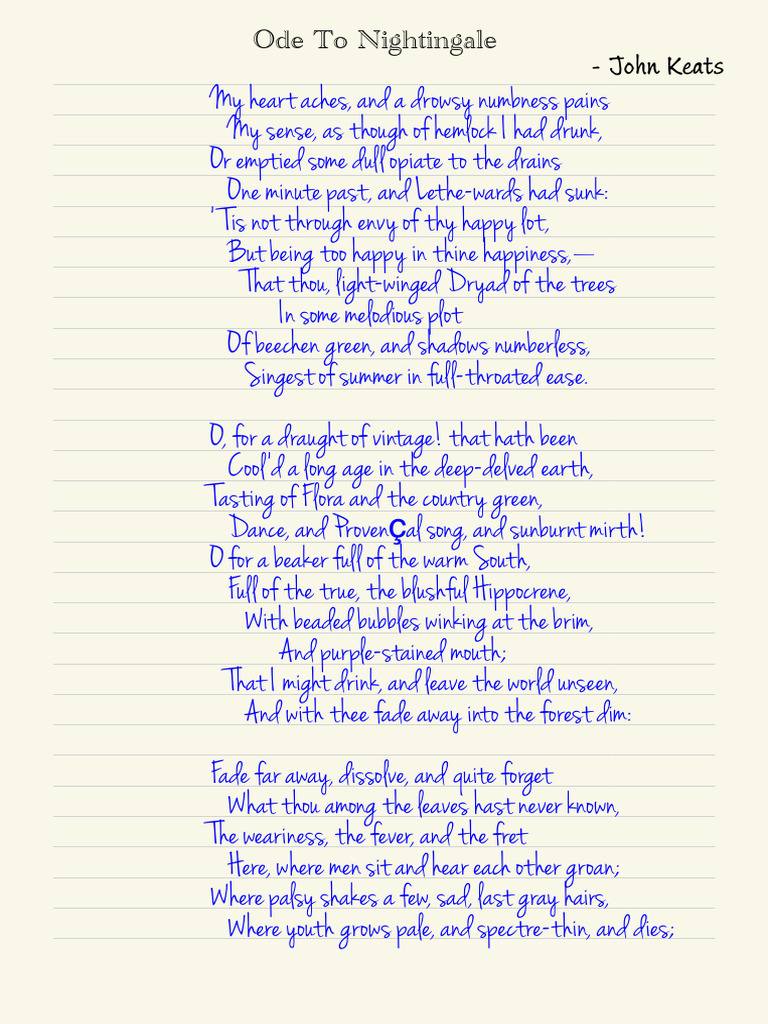 Ode To Nightingale
- John Keats
My heart aches, and a drowsy numbness pains
My sense, as though of hemlock I had drunk,
Or emptied some dull opiate to the drains
One minute past, and Lethe-wards had sunk:
'Tis not through envy of thy happy lot,
But being too happy in thine happiness,—
That thou, light-winged Dryad of the trees
In some melodious plot
Of beechen green, and shadows numberless,
Singest of summer in full-throated ease.
O, for a draught of vintage! that hath been
Cool'd a long age in the deep-delved earth,
Tasting of Flora and the country green,
Dance, and ProvenÇal song, and sunburnt mirth!
O for a beaker full of the warm South,
Full of the true, the blushful Hippocrene,
With beaded bubbles winking at the brim,
And purple-stained mouth;
That I might drink, and leave the world unseen,
And with thee fade away into the forest dim:
Fade far away, dissolve, and quite forget
What thou among the leaves hast never known,
The weariness, the fever, and the fret
Here, where men sit and hear each other groan;
Where palsy shakes a few, sad, last gray hairs,
Where youth grows pale, and spectre-thin, and dies;